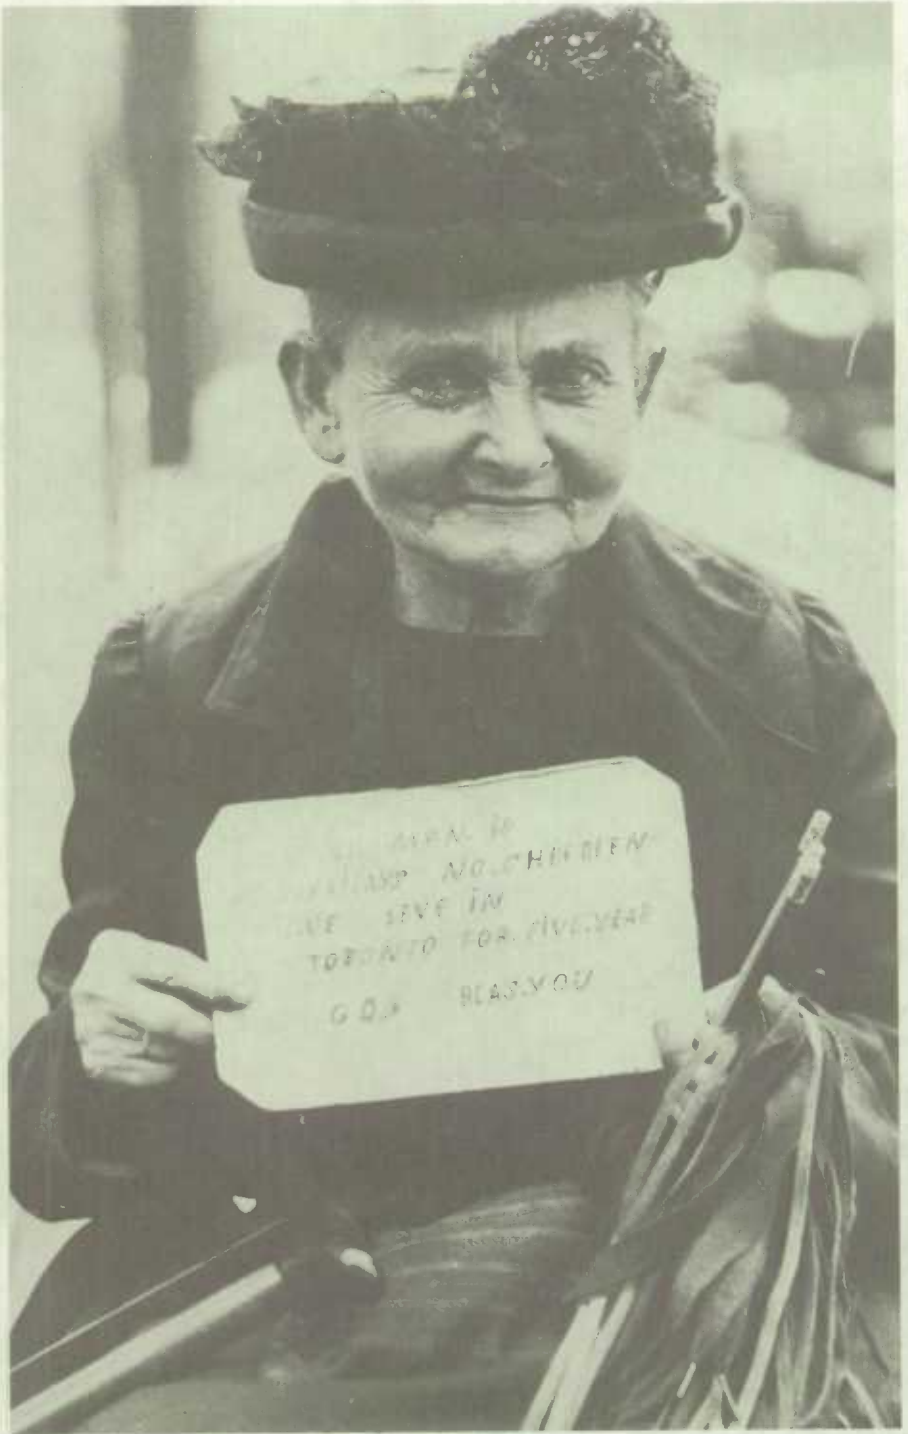 MAN. IS
NO. CHILDREN
LIVE IN
TORONTO FOR. FIVE. YEAR
GOD BLAS. YOU